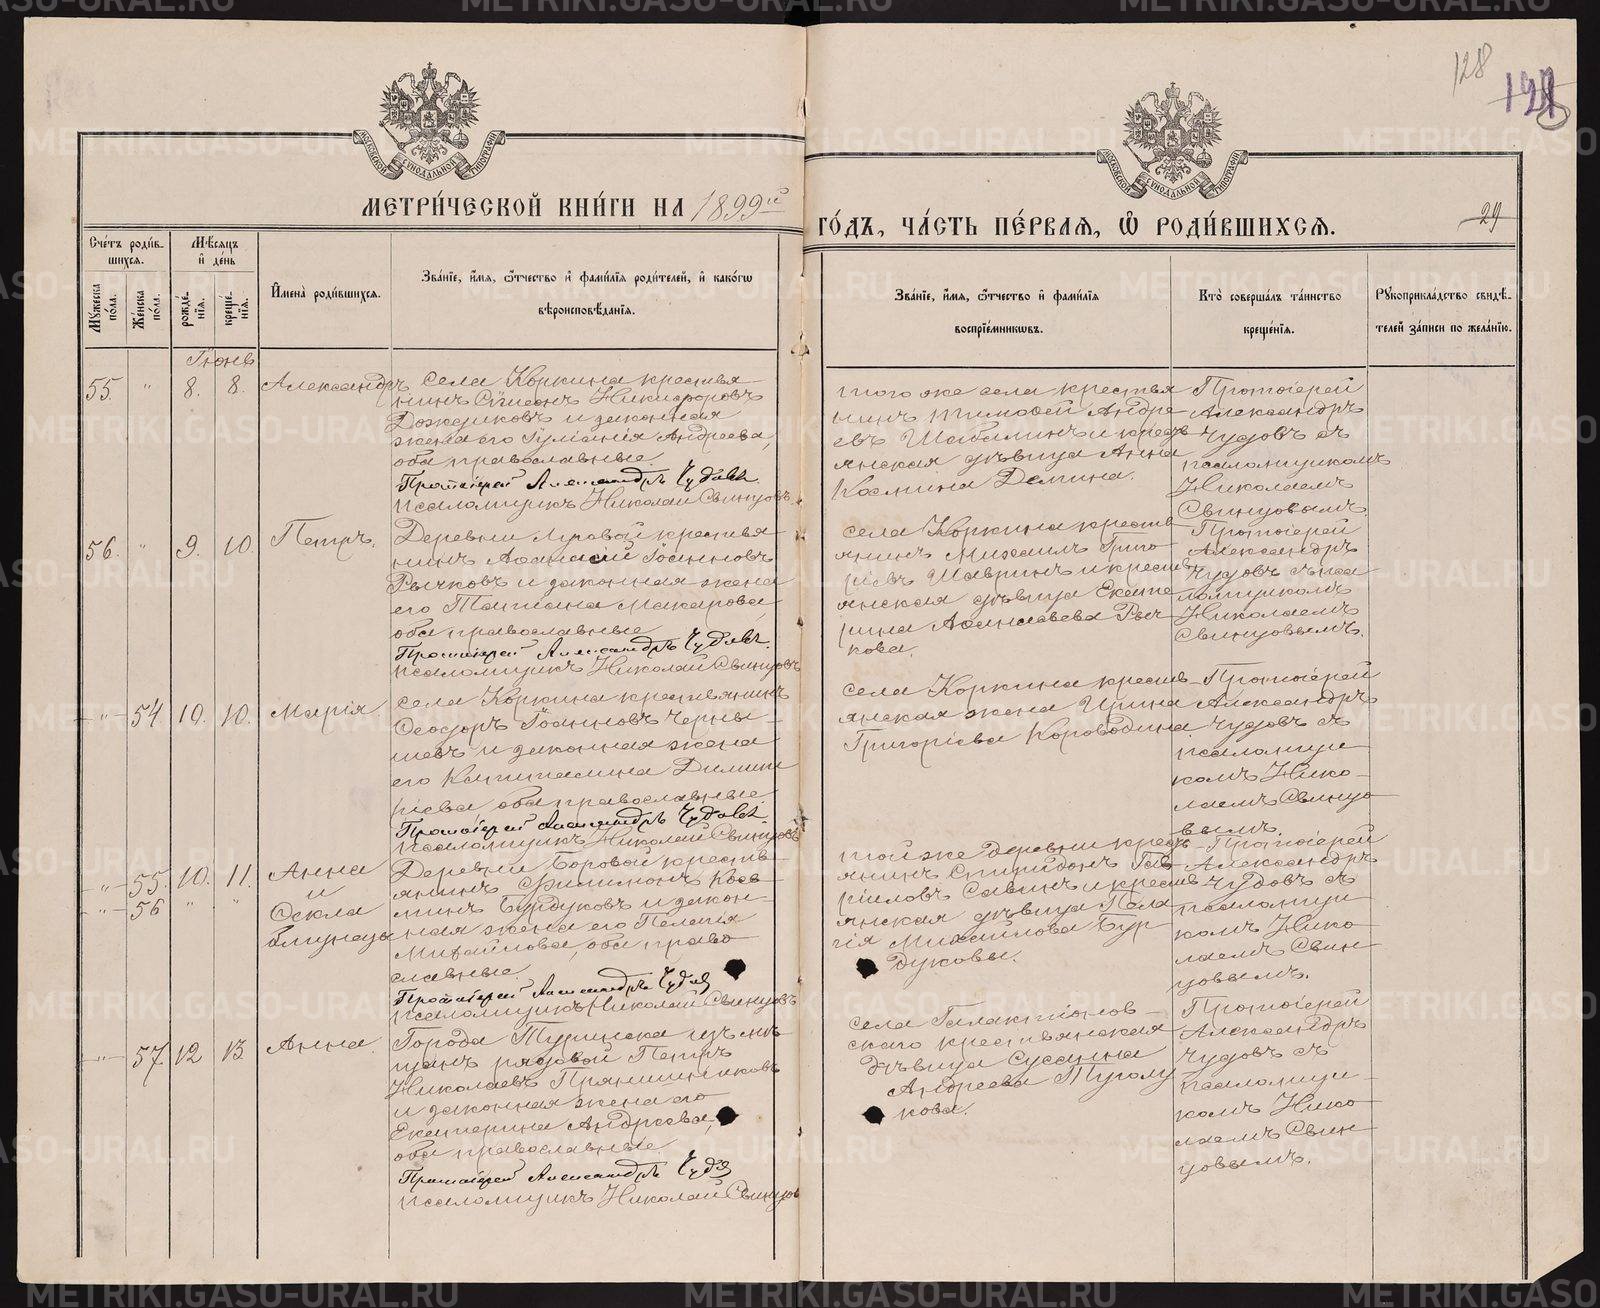 128
МЕТРИ́ЧЕСКОЙ КНИ́ГИ НА 1899й
ГО́ДЪ, ЧА́СТЬ ПЕ́РВАЯ, Ѡ҆ РОДИ́ВШИХСЯ.
29
МОСКОВСКОЙ СѴНОДАЛЬНОЙ ТИПОГРАФІИ
МОСКОВСКОЙ СѴНОДАЛЬНОЙ ТИПОГРАФІИ
Сче́тъ роди́в-
шихся.
Му́жеска по́ла.
Же́нска по́ла.
Мѣ́сяцъ
и҆ де́нь
рожде́-
нія.
креще́-
нія.
И҆мена̀ роди́вшихся.
Зва́нїе, и҆́мя, ѻ҆́тчество и҆ фами́лїя роди́телей, и҆ како́гѡ
вѣроисповѣ́данїя.
Зва́нїе, и҆́мя, ѻ҆́тчество и҆ фами́лїя
воспрїе́мниковъ.
Кто̀ соверша́лъ та́инство
креще́нїя.
Рꙋкоприкла́дство свидѣ́-
телей за́писи по жела́нїю.
Іюнь
55. " 8. 8. Александръ
Села Коркина крестья
нинъ Сѵмеонъ Никифоровъ
Дождиковъ и законная
жена его Іуліанія Андреева,
оба православные.
Протоіерей Александръ Чудовъ.
Псаломщикъ Николай Свинцовъ.
того же села крестья
нинъ Тимофей Андре
евъ Шабалинъ и крестъ
янская дѣвица Анна
Космина Демина.
Протоіерей
Александръ
Чудовъ съ
псаломщикомъ
Николаемъ
Свинцовымъ.
56. " 9. 10. Петръ.
Деревни Луговой крестья
нинъ Аѳанасій Іоанновъ
Рычковъ и законная жена
его Татіана Макарова
оба православные.
Протоіерей Александръ Чудовъ.
псаломщикъ Николай Свинцовъ
села Коркина кресть
янинъ Михаилъ Григо
ріевъ Шавринъ и кресть
янская дѣвица Екате
рина Аѳанасьева Рыч
кова.
Протоіерей
Александръ
Чудовъ съ пса
ломщикомъ
Николаемъ
Свинцовымъ.
" 54 10. 10. Марія
Села Коркина крестьянинъ
Ѳеодоръ Іоанновъ Черны-
шевъ и законная жена
его Капитолина Димит
ріева оба православные.
Протоіерей Александръ Чудовъ.
псаломщикъ Николай Свинцовъ
села Коркина кресть-
янская жена Ирина
Григоріева Короводина
Протоіерей
Александръ
Чудовъ съ
псаломщи-
комъ Нико-
лаемъ Свинцо
вымъ.
" 55. 10. 11. Анна
и
" 56 " " Ѳекла
близнецы
Деревни Боровой кресть-
янинъ Филимонъ Кось
минъ Бурдуковъ и закон-
ная жена его Пелагія
Михайлова, оба право-
славные.
Протоіерей Александръ Чудов
псаломщикъ Николай Свинцовъ
той же деревни кресть-
янинъ Спиридонъ Гав-
ріиловъ Савинъ и кресть
янская дѣвица Пела
гія Михайлова Бур
дуковы.
Протоіерей
Александръ
Чудовъ съ
псаломщи-
комъ Нико-
лаемъ Свин-
цовымъ.
" 57. 12 13. Анна.
Города Туринска изъ мѣ-
щанъ рядовой Петръ
Николаевъ Прянишниковъ
и законная жена его
Екатерина Андреева,
оба православные.
Протоіерей Александръ Чудов
псаломщикъ Николай Свинцов
села Галактіонов-
скаго крестьянская
дѣвица Сусанна
Андреева Туголу
кова.
Протоіерей
Александръ
Чудовъ съ
псаломщи-
комъ Нико-
лаемъ Свин-
цовымъ.
METRIKI.GASO-URAL.RU